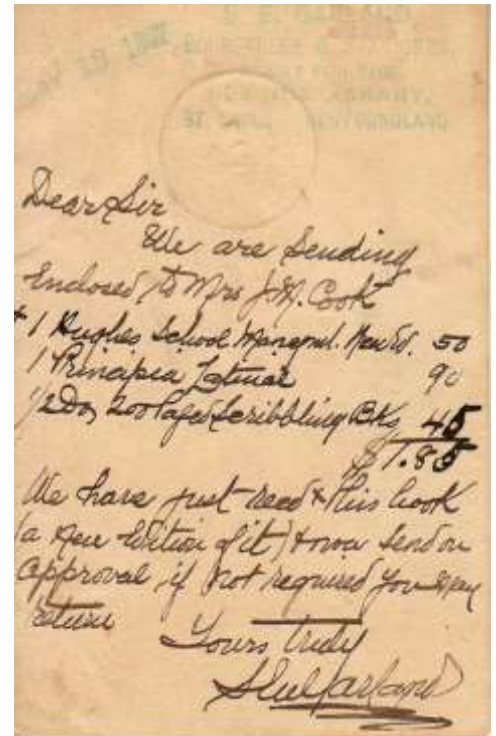 S. E. GARLAND
BOOKSELLER & STATIONER,
ST. JOHN'S, NEWFOUNDLAND
Dear Sir
We are sending
Enclosed to Mrs J. M. Cook
+ 1 Hughes School 50
1 Principia Latina 90
1/2 Doz 200 Page Scribbling Bks 45
$1.85
We have just rec'd + this book
(a new Edition of it) + now send on
approval if not required you may
return
Yours truly
S E Garland